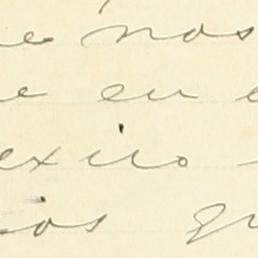 e nos
e en e
exito
ios qu